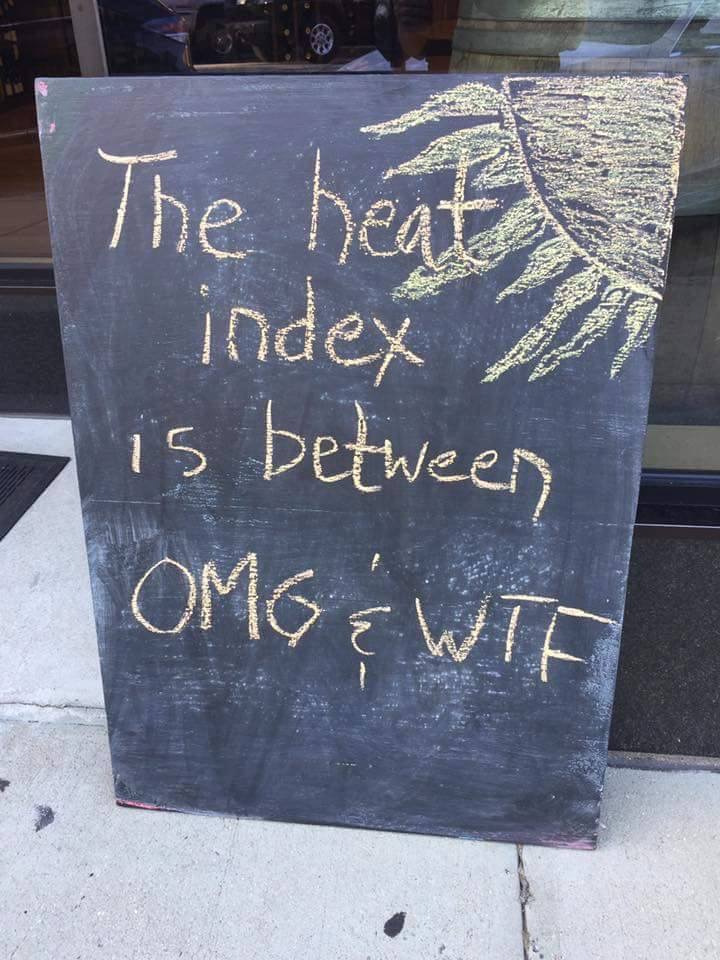 The heat
index
is between
OMG & WTF